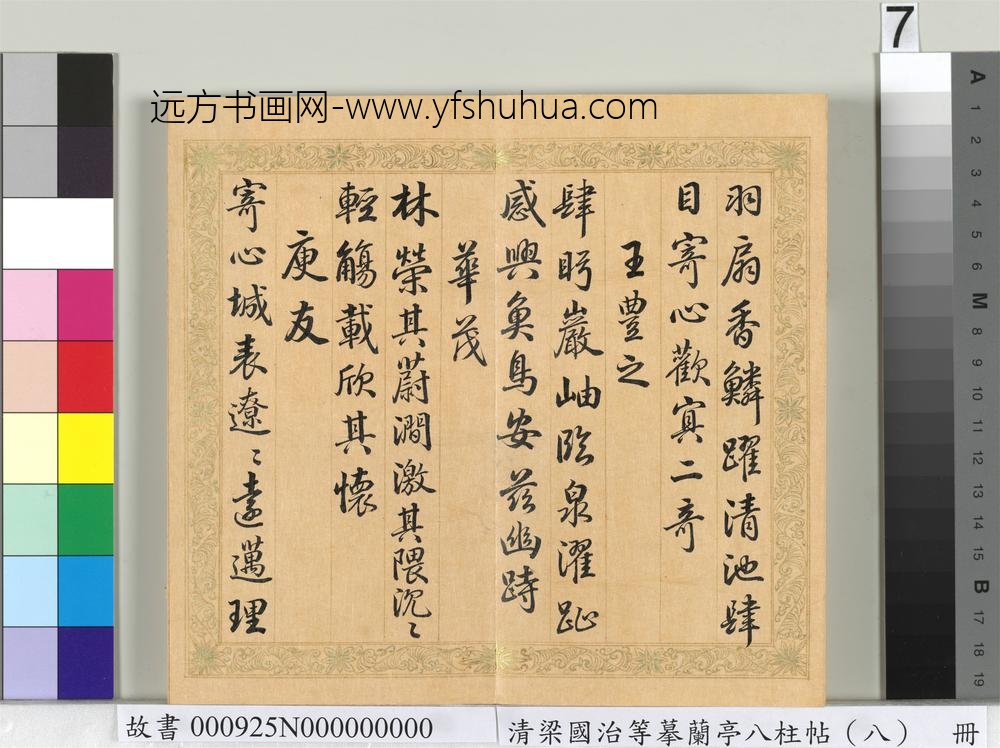 7
远方书画网-www.yfshuhua.com
羽扇香鱗躍清池肆
目寄心歡寘二奇
王豐之
肆盻巖岫臨泉濯趾
感興魚鳥安茲幽跱
華茂
林榮其蔚澗激其隈汎〻
輕觴載欣其懷
庾友
寄心城表遼〻遠邁理
A
1
2
3
4
5
6
M
8
9
10
11
12
13
14
15
B
17
18
19
故書 000925N000000000
清梁國治等摹蘭亭八柱帖（八） 冊